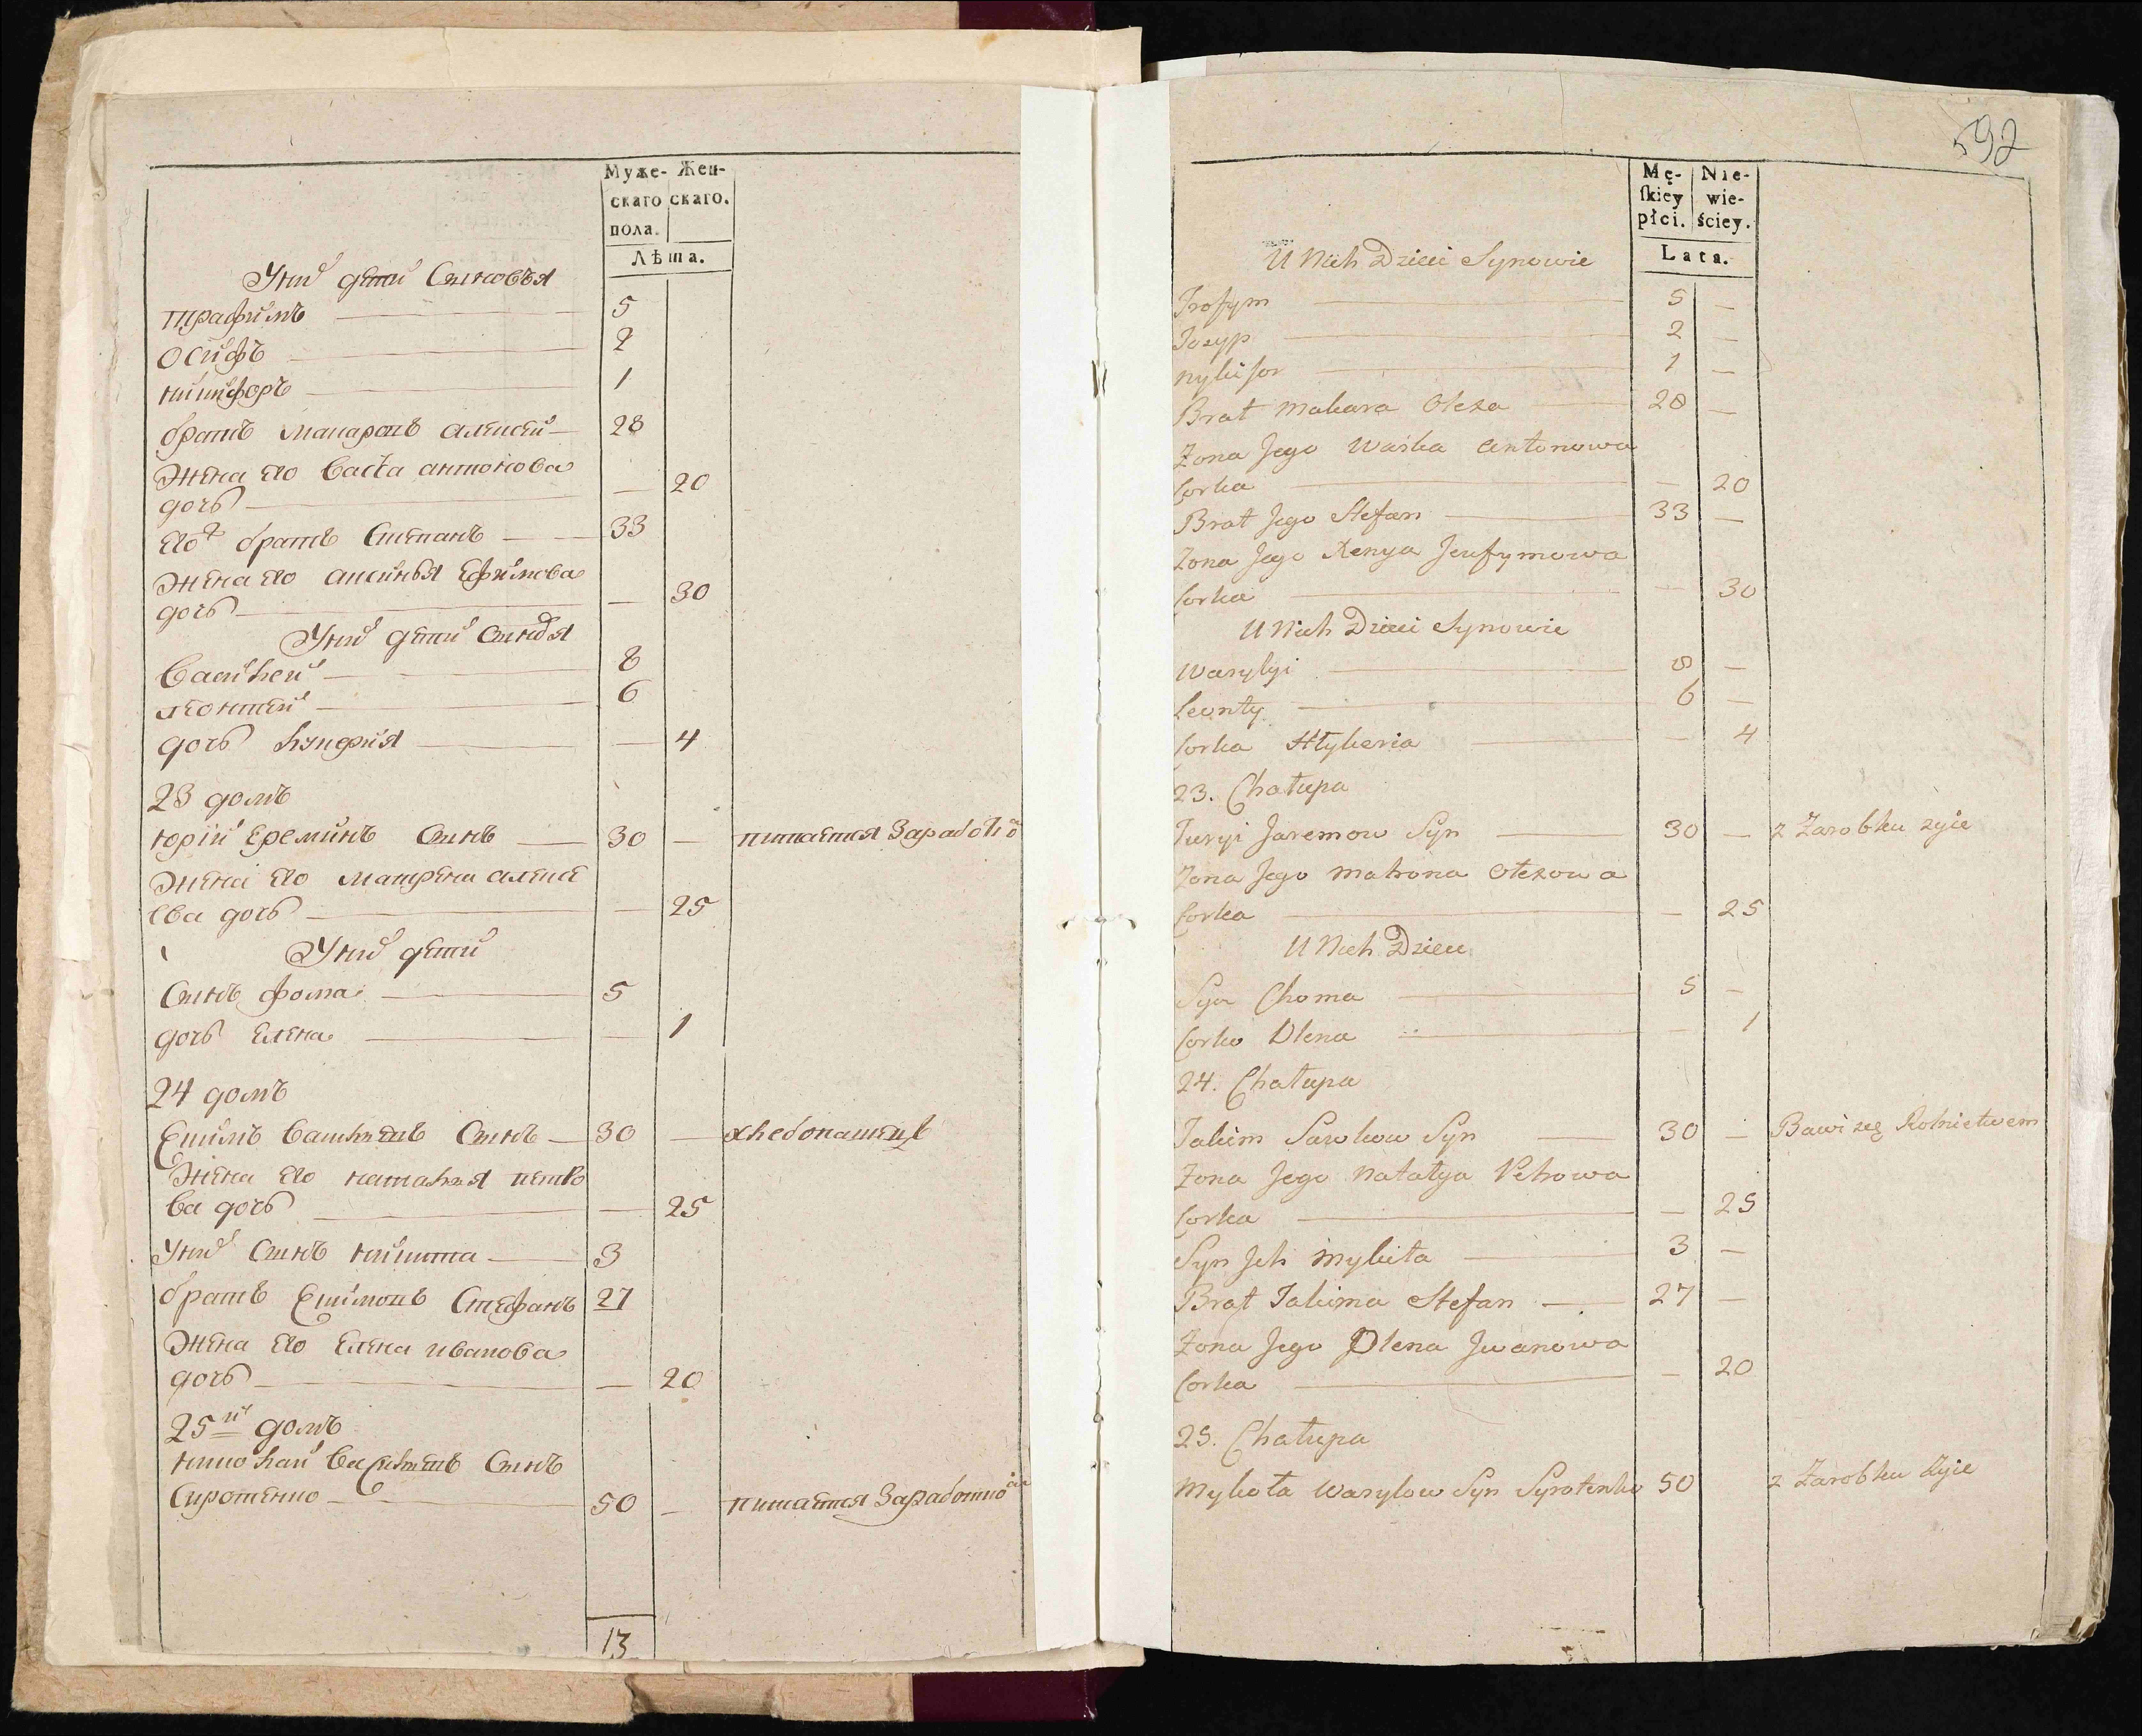 Муже-
скаго
пола.
Жен-
скаго.
Лѣта.
У нихъ дети Сыновья
трафимъ 5
осифъ 2
никифоръ 1
братъ макаровъ алексей 28
Жена его Васка антонова
дочь — 20
его братъ Степанъ — 33
Жена его аксинья Ефимова
дочь — 30
У нихъ дети
Василей 8
леонтей 6
дочь — 4
23 домъ
юрiй Ереминъ Сынъ — 30 — питается
Жена его матрена алексе
ева дочь — 25
У нихъ дети
Сынъ фома 5
дочь Елена — 1
24 домъ
Екимъ Сынъ — 30 — хлебопашецъ
Жена его наталья петро
ва дочь — 25
У нихъ Сынъ никита 3
братъ Екимовъ Стефанъ 27
Жена его Елена иванова
дочь — 20
25й домъ
николай Сынъ
Сиротенко — 50 — питается
13
592
Mę-
skiey
płci.
Nie-
wie-
ściey.
Lata.
U Nich Dzieci Synowie
Trofym 5 —
Iozyp 2 —
nykifor 1 —
Brat Makara Olexa 28 —
Zona Jego Waśka Antonowa
Corka — 20
Brat Jego Stefan 33 —
Zona Jego Xenya Jeufymowa
Corka — 30
U Nich Dzieci Synowie
Wasylyi 8 —
Leonty 6 —
Corka Hłykeria — 4
23. Chałupa
Juryi Jaremow Syn 30 — z Zarobku zyie
Zona Jego Matrona Olexowa
Corka — 25
U Nich Dzieci
Syn Choma 5 —
Corka Olena — 1
24. Chałupa
Jakim Sawkow Syn 30 — Bawi się Rolnictwem
Zona Jego Natalya Petrowa
Corka — 25
Syn Jch Mykita 3 —
Brat Jakima Stefan 27 —
Zona Jego Olena Jwanowa
Corka — 20
25. Chałupa
Mykoła Wasylow Syn Syrotenko 50 z Zarobku żyie